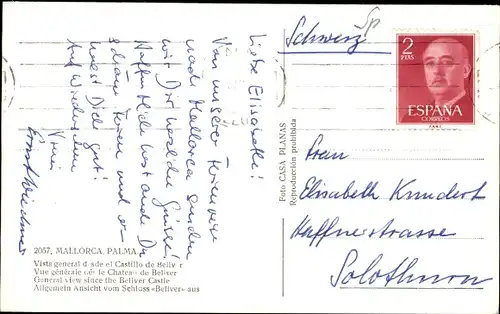 Liebe Elisabeth!
Von unserer Ferienreise
nach Mallorca senden
wir Dir herzliche Grüsse!
Hoffentlich hast auch Du
schöne Ferien und er-
holst Dich gut!
Auf Wiedersehen
2057, MALLORCA, PALMA
Vista general desde el Castillo de Bellver
Vue générale dès le Chateau de Bellver
General view since the Bellver Castle
Allgemein Ansicht vom Schloss «Bellver» aus
Foto CASA PLANAS
Reproducción prohibida
Schweiz
2
PTAS
ESPAÑA
CORREOS
Elisabeth Kundert
Haffnerstrasse
Solothurn